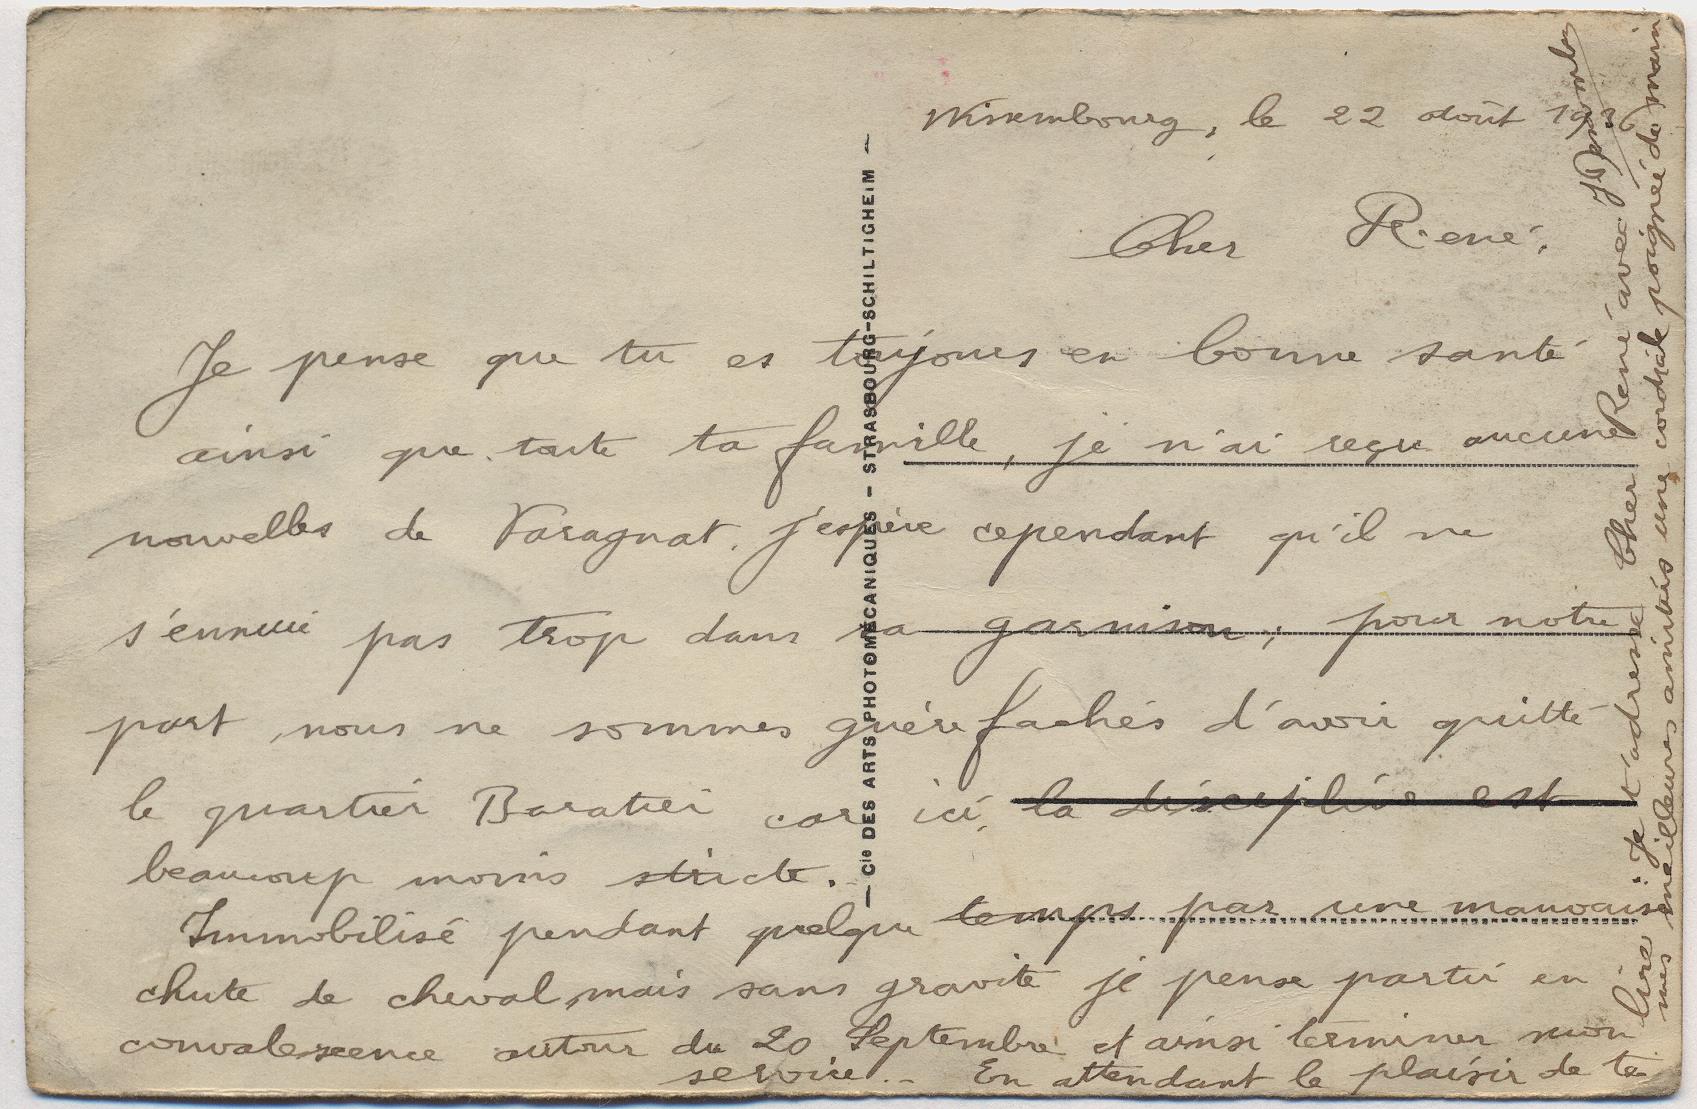 Wissembourg, le 22 août 1936
Cher René,
Je pense que tu es toujours en bonne santé
ainsi que toute ta famille, je n'ai reçu aucune
nouvelles de Varagnat. j'espère cependant qu'il ne
s'ennuie pas trop dans sa garnison; pour notre
part, nous ne sommes guère fachés d'avoir quitté
le quartier Baratier car ici, la discipline est
beaucoup moins stricte.
Immobilisé pendant quelque temps par une mauvaise
chute de cheval, mais sans gravité je pense partir en
convalescence autour du 20 Septembre et ainsi terminer mon
service... En attendant le plaisir de te
lire, Je t'adresse Cher René avec
mes meilleures amitiés une cordiale poignée de main
— Cie DES ARTS PHOTOMÉCANIQUES - STRASBOURG-SCHILTIGHEIM —